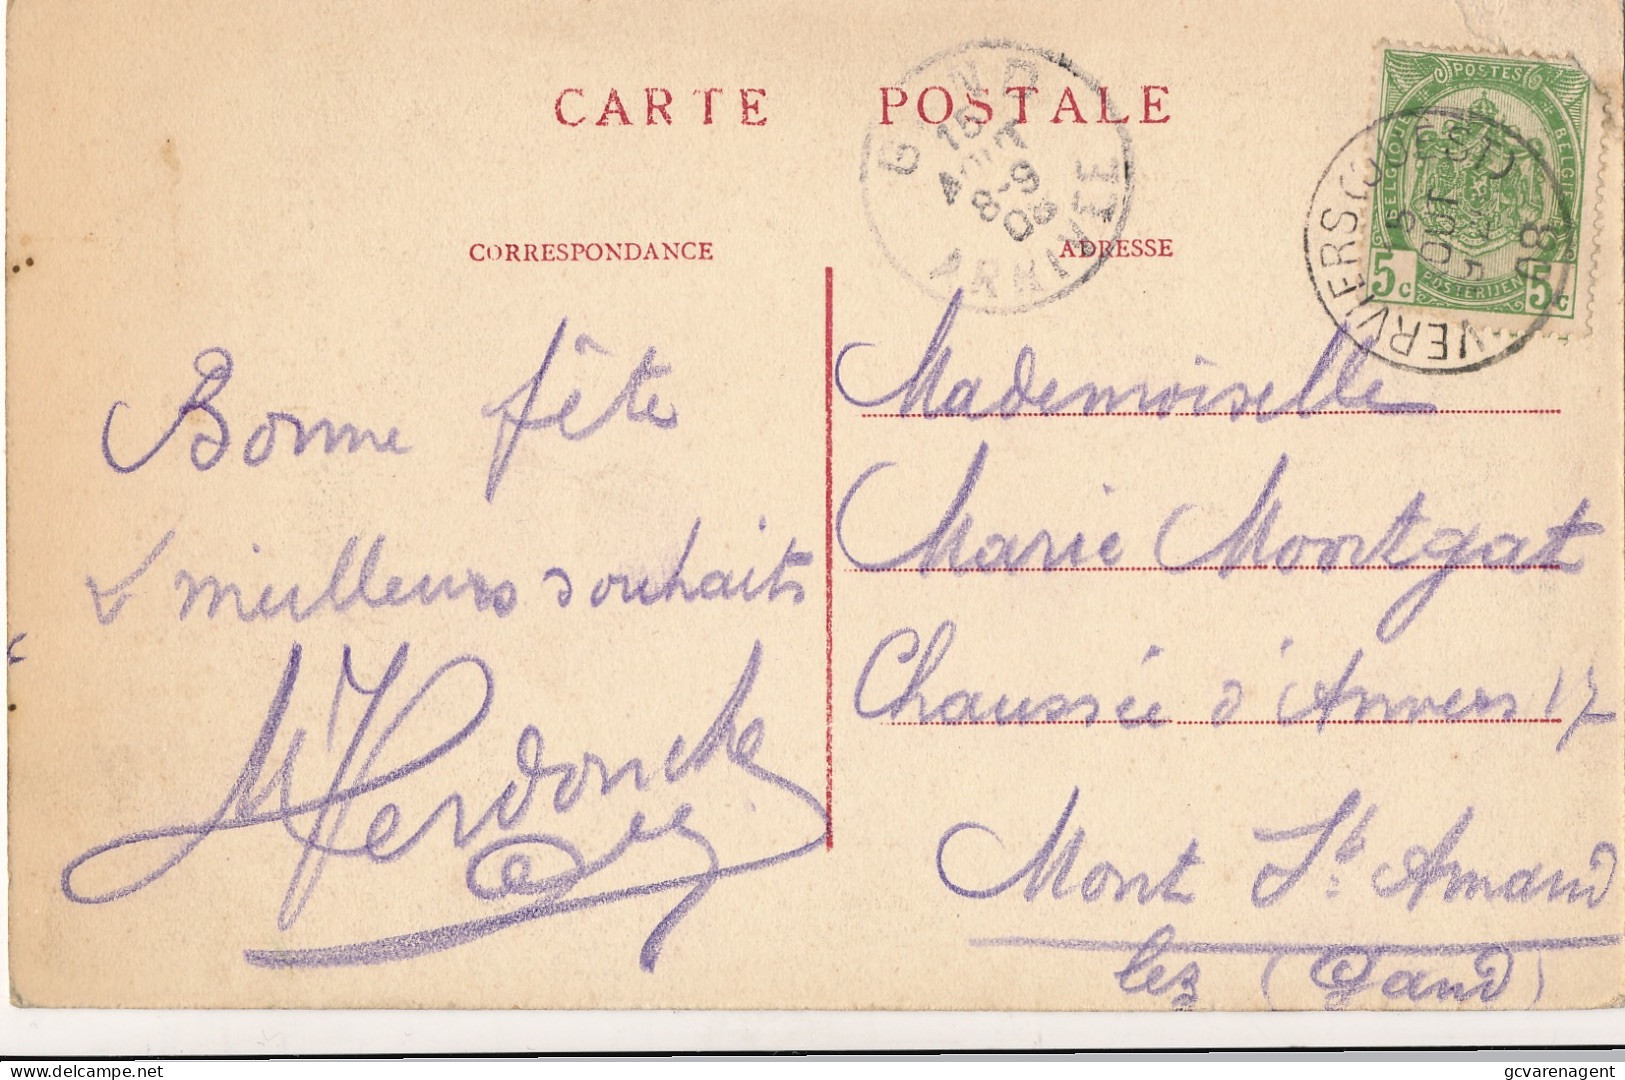 CARTE POSTALE
CORRESPONDANCE
ADRESSE
Bonne fête
& meilleurs souhaits
Mademoiselle
Marie Montgat
Chaussée d'Anvers 17
Mont St. Amand
lez (Gand)
GAND
15
AOUT
8-9
08
ARRIVEE
VERVIERS (OUEST)
AOUT
08
POSTES
BELGIQUE
BELGIË
POSTERIJEN
5c 5c
gcvarenagent
delcampe.net